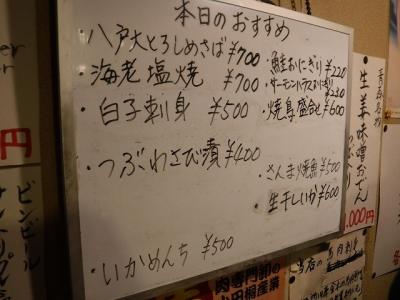 本日のおすすめ
八戸大とろしめさば ¥700
海老塩焼 ¥700
・白子刺身 ¥500
・つぶわさび漬 ¥400
・いかめんち ¥500
・鮭おにぎり ¥220
・サーモンハラスおにぎり ¥220
・焼鳥盛合せ ¥600
・さんま焼魚 ¥500
・生干しいか ¥600
生姜味噌おでん
円
ビンビール
肉専門卸の